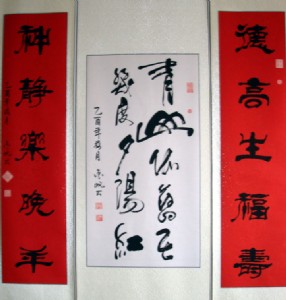 德高生福壽
青山依舊在
幾度夕陽紅
乙酉年
神靜樂晚年